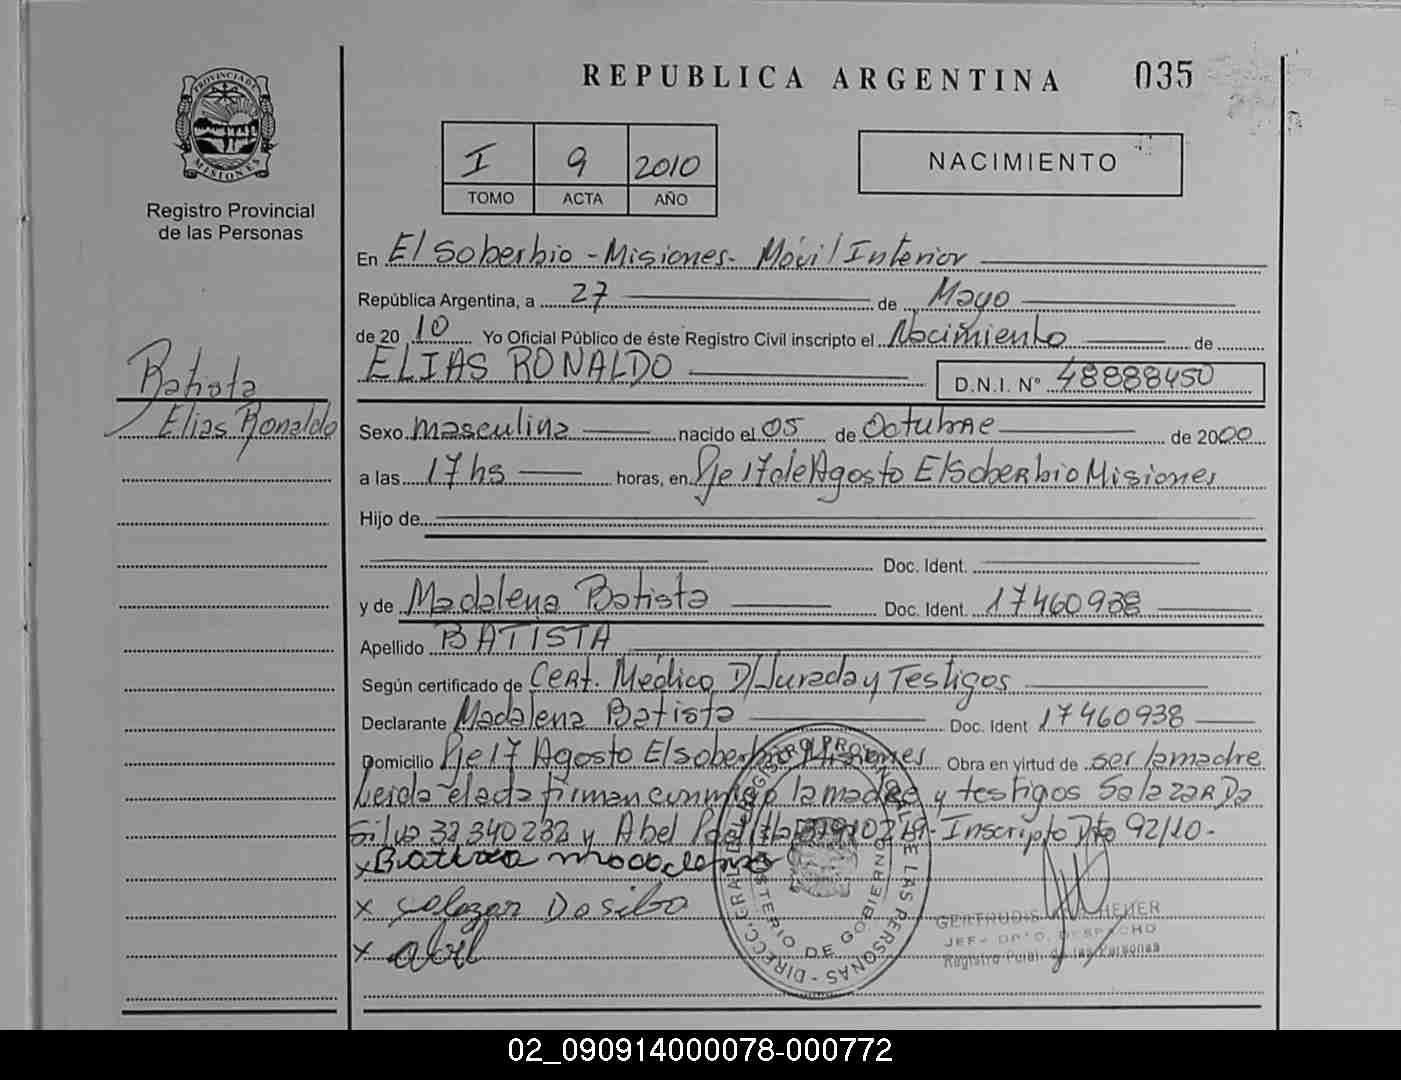 REPUBLICA ARGENTINA 035
PROVINCIA DE MISIONES
Registro Provincial
de las Personas
I 9 2010
TOMO ACTA AÑO
NACIMIENTO
En El Soberbio - Misiones - Móvil Interior
República Argentina, a 27 de Mayo
de 2010 Yo Oficial Público de éste Registro Civil inscripto el Nacimiento de
ELIAS RONALDO D.N.I. N° 48888450
Batista
Elias Ronaldo
Sexo masculina nacido el 05 de Octubre de 2000
a las 17 hs horas, en Pje 17 de Agosto El Soberbio Misiones
Hijo de
Doc. Ident.
y de Madalena Batista Doc. Ident. 17460938
Apellido BATISTA
Según certificado de Cert. Médico D/Jurada y Testigos
Declarante Madalena Batista Doc. Ident 17460938
Domicilio Pje 17 Agosto El Soberbio Misiones Obra en virtud de ser la madre
Leida el acta firman conmigo la madre y testigos Salazar Da
Silva 32340232 y Abel Inscripto Dto 92/10-
x Batista
x Salazar Da Silva
x abel
DIRECC. GRAL. DEL REGISTRO PROVINCIAL DE LAS PERSONAS
MINISTERIO DE GOBIERNO
GERTRUDIS
JEF- DPTO. DESPACHO
Registro de las Personas
02_090914000078-000772